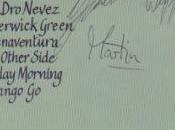 Dro Nevez
erwick Green
naventura
Other Side
day Morning
ango Go
Martin